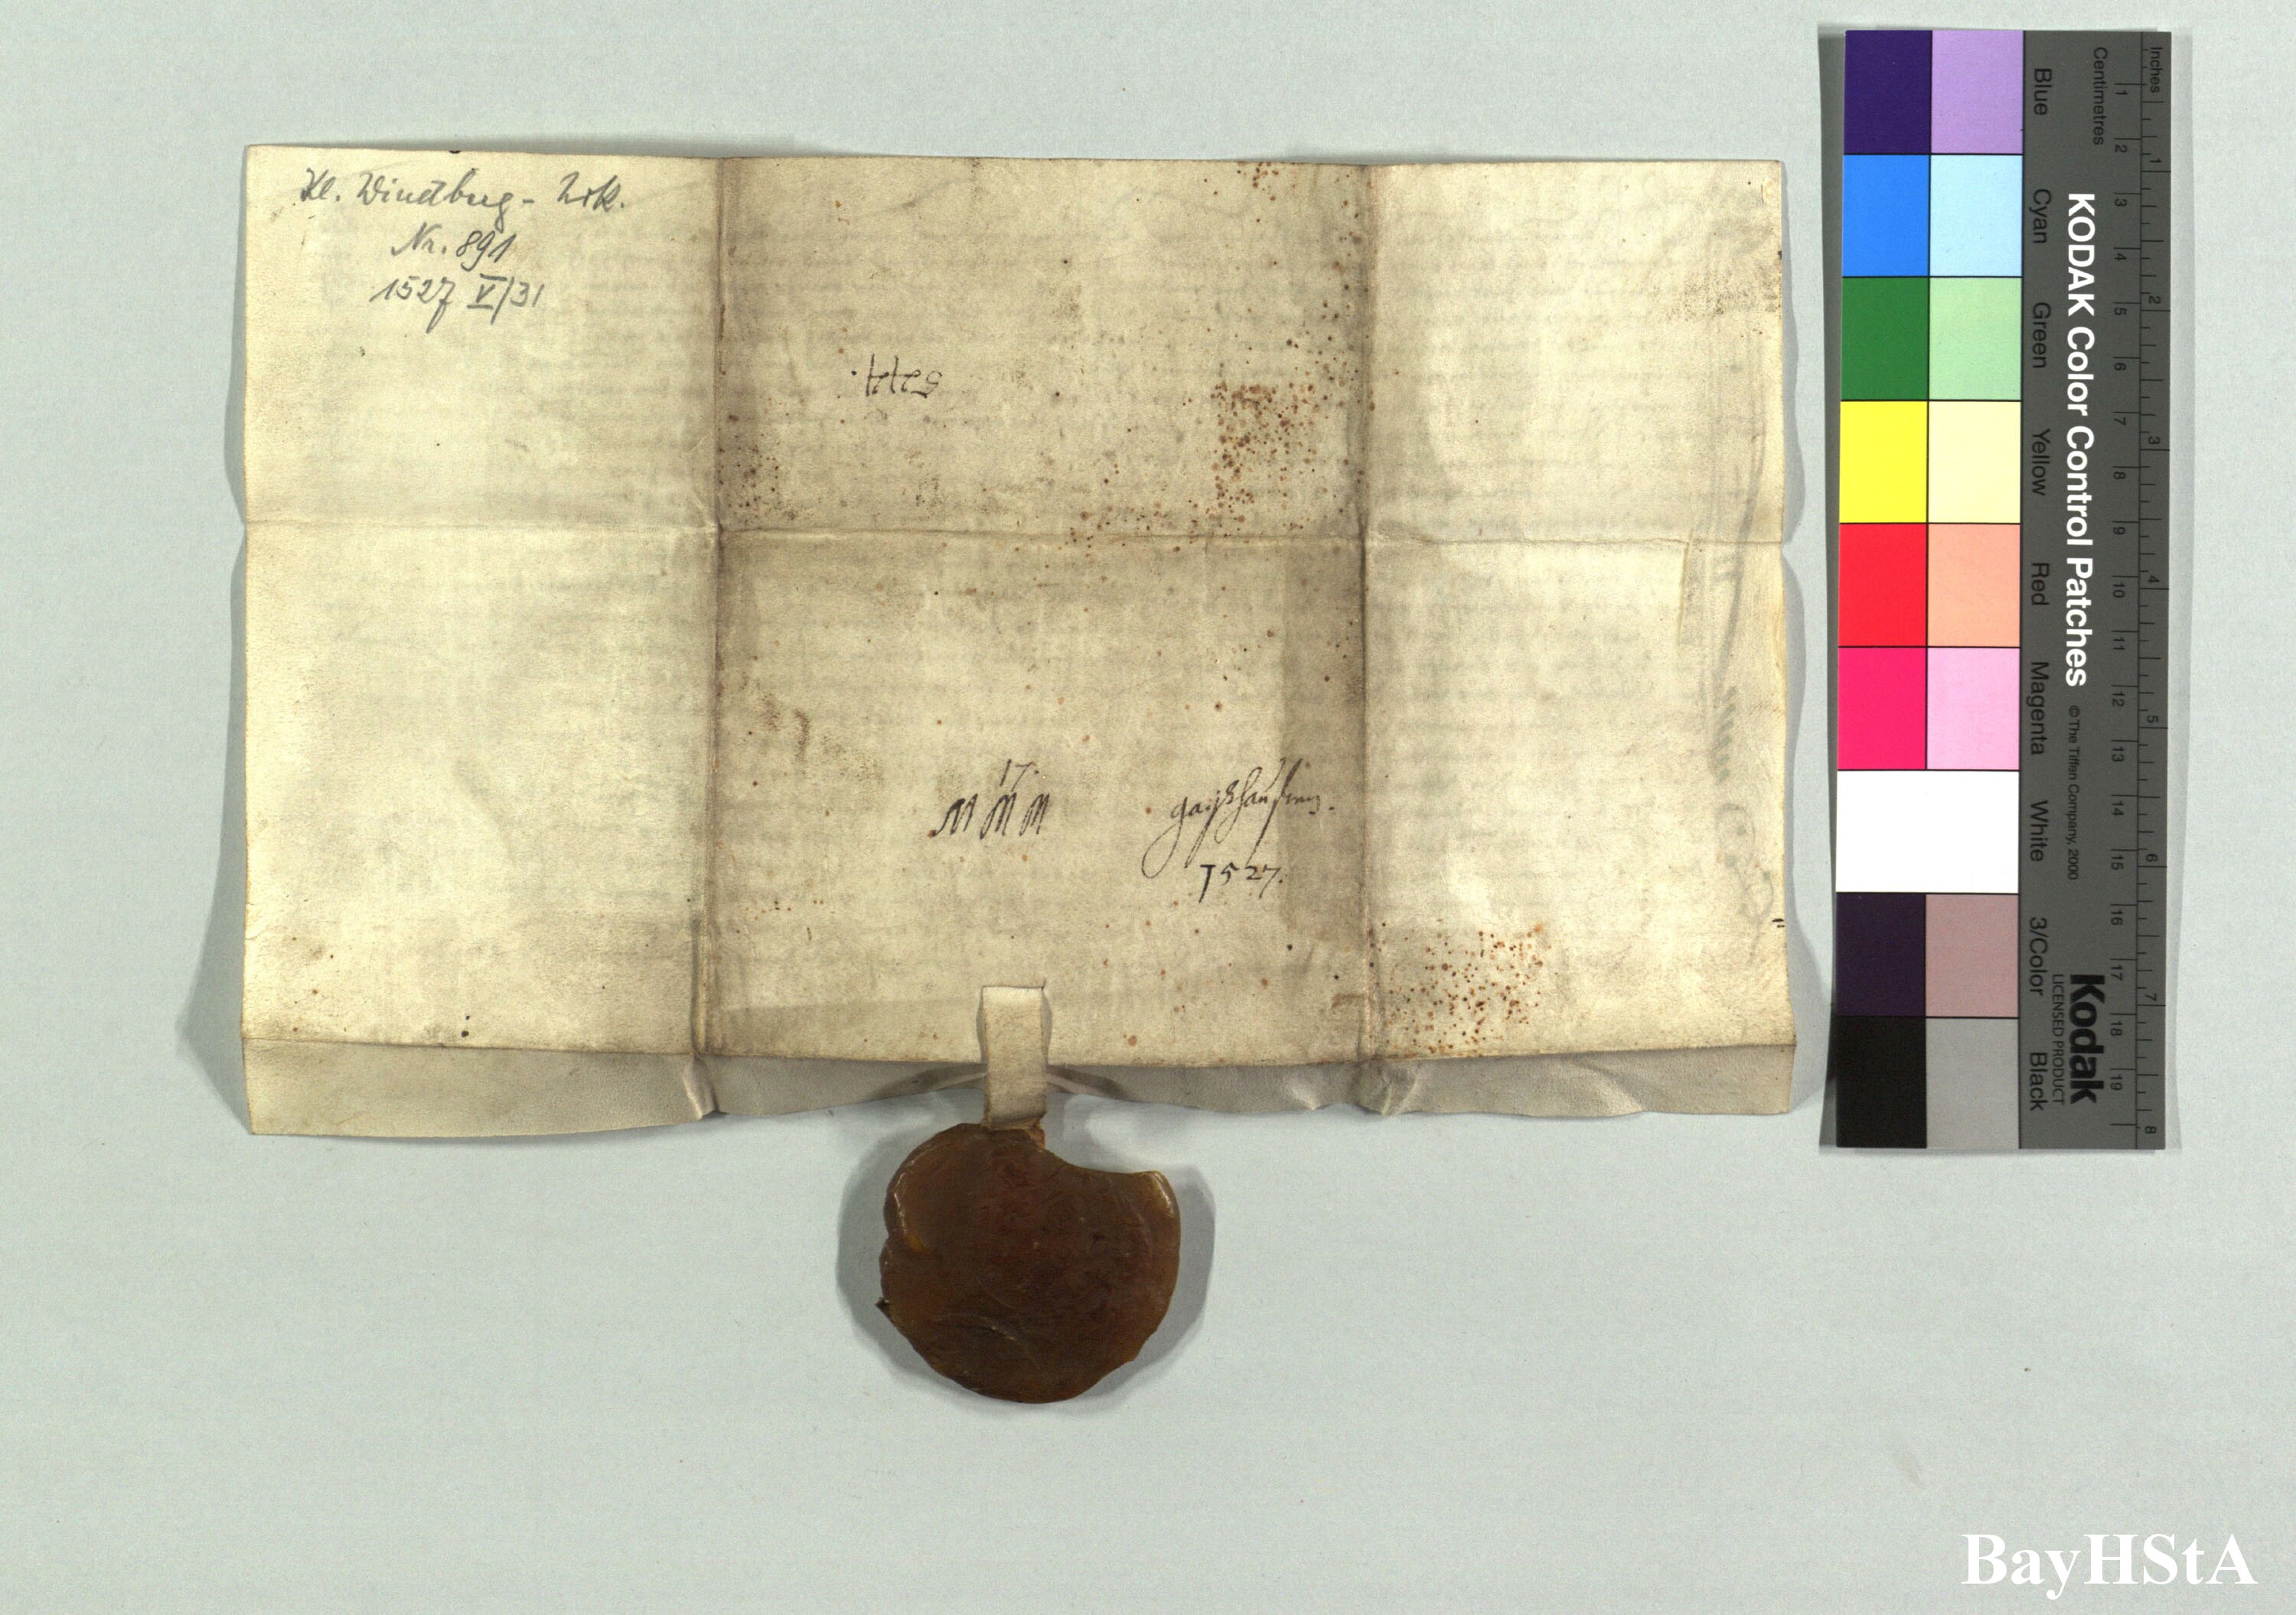 Kl. Windberg - Urk.
Nr. 891
1527 V/31
17.
M M M
gayßhausen.
1527.
Inches
Centimetres
1 2 3 4 5 6 7 8
1 2 3 4 5 6 7 8 9 10 11 12 13 14 15 16 17 18 19
KODAK Color Control Patches
© The Tiffen Company, 2000
Kodak
LICENSED PRODUCT
Blue
Cyan
Green
Yellow
Red
Magenta
White
3/Color
Black
BayHStA